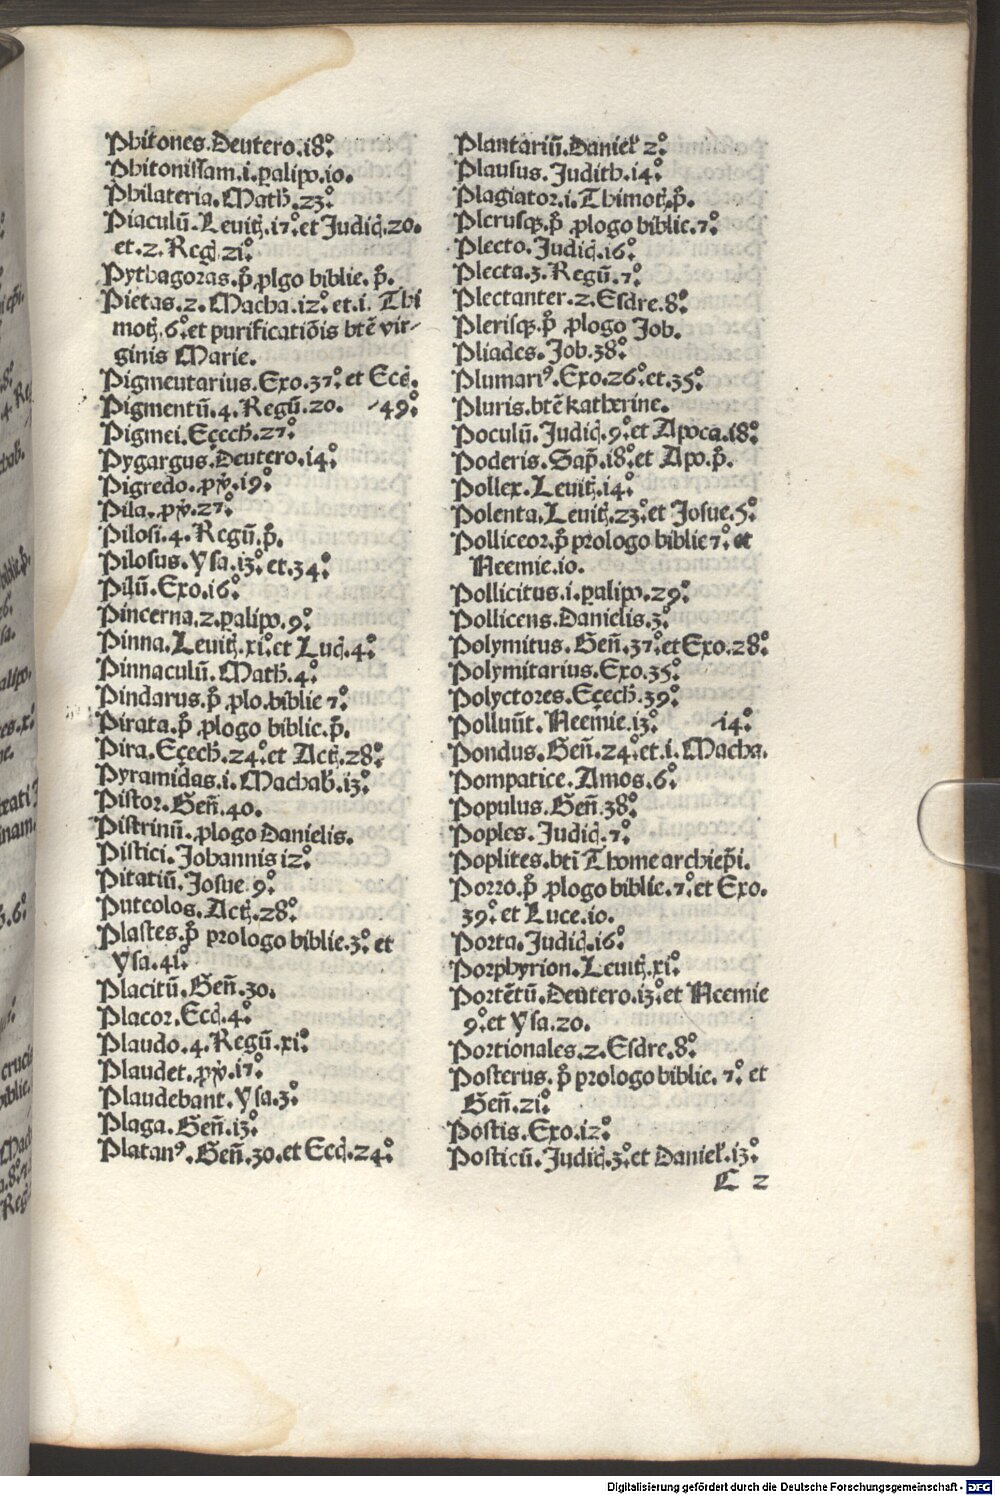 Phitones.Deutero.18°
Phitonissam.i.palipo.io.
Philateria.Math.23°
Piaculū.Leuit.17°et Judic.20.
et.2.Reg.21°
Pythagoras.p̄ plgo biblie.p̄.
Pietas.2.Macha.12°et.i.Thi
mot.6°et purificatiōis btē vir-
ginis Marie.
Pigmentarius.Exo.37°et Ecc.
Pigmentū.4.Regū.20. -49°
Pigmei.Ezech.27°
Pygargus.Deutero.14°
Pigredo.pv.19°
Pila.pv.27°
Pilosi.4.Regū.p̄.
Pilosus.Ysa.13°et.34°
Pilū.Exo.16°
Pincerna.2.palipo.9°
Pinna.Leuit.xi°et Luc.4°
Pinnaculū.Math.4°
Pindarus.p̄ plo.biblie 7°
Pirata.p̄ plogo biblie.p̄.
Pira.Ezech.24°et Act.28°
Pyramidas.i.Machab.13°
Pistor.Gen̄.40.
Pistrinū.plogo Danielis.
Pistici.Johannis 12°
Pitatiū.Josue 9°
Puteolos.Act.28°
Plastes.p̄ prologo biblie.3°et
Ysa.41°
Placitū.Gen̄.30.
Placor.Ecc.4°
Plaudo.4.Regū.xi°
Plaudet.pv.17°
Plaudebant.Ysa.3°
Plaga.Gen̄.13°
Platanꝰ.Gen̄.30.et Ecc.24°
Plantariū.Daniel 2°
Plausus.Judith.14°
Plagiator.i.Thimot.p̄.
Plerusqꝫ.p̄ plogo biblie.7°
Plecto.Judic.16°
Plecta.3.Regū.7°
Plectanter.2.Esdre.8°
Plerisqꝫ.p̄ plogo Job.
Pliades.Job.38°
Plumariꝰ.Exo.26°et.35°
Pluris.btē katherine.
Poculū.Judic.9°et Apoca.18°
Poderis.Sap̄.18°et Apo.p̄.
Pollex.Leuit.14°
Polenta.Leuit.23°et Josue.5°
Polliceor.p̄ prologo biblie 7°et
Neemie.io.
Pollicitus.i.palipo.29°
Pollicens.Danielis.3°
Polymitus.Gen̄.37°et Exo.28°
Polymitarius.Exo.35°
Polyctores.Ezech.39°
Polluūt.Neemie.13° -14°
Pondus.Gen̄.24°et.i.Macha.
Pompatice.Amos.6°
Populus.Gen̄.38°
Poples.Judic.7°
Poplites.bti Thome archiep̄i.
Porro.p̄ plogo biblie.7°et Exo.
39°et Luce.io.
Porta.Judic.16°
Porphyrion.Leuit.xi°
Portētū.Deutero.13°et Neemie
9°et Ysa.20.
Portionales.2.Esdre.8°
Posterus.p̄ prologo biblie.7°et
Gen̄.21°
Postis.Exo.12°
Posticū.Judic.3°et Daniel.13°
C 2
Digitalisierung gefördert durch die Deutsche Forschungsgemeinschaft - DFG